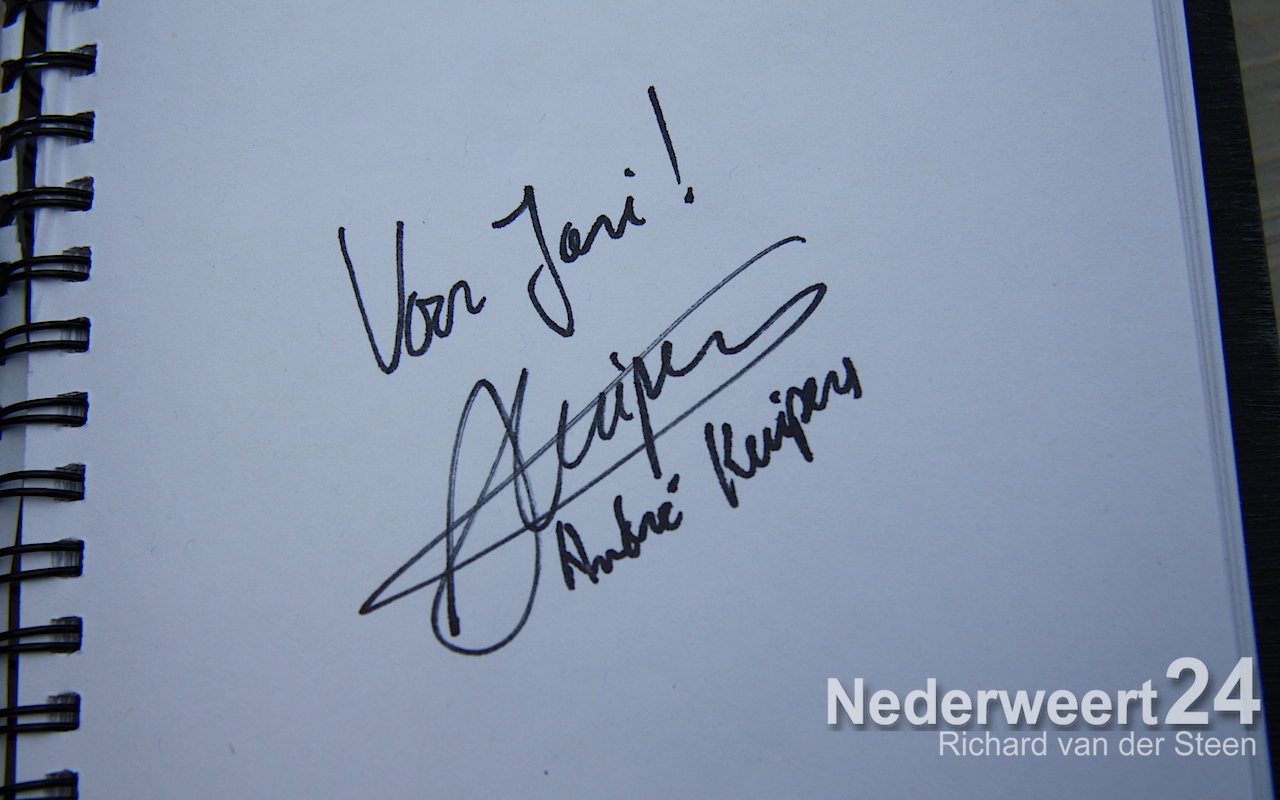 Voor Jari!
AKuipers
André Kuipers
Nederweert24
Richard van der Steen